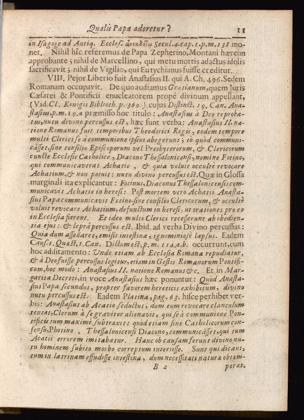 Qualis Papa adoretur? 11
in Isagoge ad Antiq. Eccles. sæculi 4. cap. 1. p. m. 151 mo-
net. Nihil hîc referemus de Papa Zepherino, Montani hæresin
approbante; nihil de Marcellino, qui metu mortis adactus idolis
sacrificavit; nihil de Vigilio, qui Eutychianus fuisse creditur.
VIII. Pejor Liberio fuit Anastasius II. qui A. Ch. 496. Sedem
Romanam occupavit. De quo audiamus Gratianum, quem Juris
Cæsarei & Pontificii enucleatorem propè divinum appellant,
cujus Distinct. 19. Can. Ana-
stasius p. m. 19. a præmisso hoc titulo: Anastasius à Deo reproba-
tus, nutu divino percussus est, hæc sunt verba: Anastasius II. na-
tione Romanus fuit temporibus Theodorici Regis, eodem tempore
multi Clerici se à communione ipsius abegerunt, eò quod communi-
câsset, sine consilio Episcoporum vel Presbyterorum, & Clericorum
cunctæ Ecclesiæ Catholicæ, Diacono Thessalonicensi, nomine Fotino,
qui communicaverat Achatio, & quia voluit occultè revocare
Achatium, & non potuit: nutu divino percussus est. Quæ in Glossa
marginali ita explicantur: Fotinus, Diaconus Thessalonicensis com-
municavit Achatio in hæresi: Post mortem verò Achatii Anasta-
sius Papa communicavit Fotino sine consilio Clericorum, & occultè
voluit revocare Achatium, defunctum in hæresi, ut orationes pro eo
in Ecclesia fierent. Et ideo multi Clerici recesserunt ab obedien-
tia ejus: & leprâ percussus est. Ibid. ad verba Divino percussus:
Quia dum assellaret, emisit intestina,
Eadem
occurrunt, cum
hoc additamento: Unde etiam ab Ecclesia Romana repudiatur,
& à Deo fuisse percussus legitur, etiam in Gestis Romanorum Pontifi-
cum, hoc modo: Anastasius II. natione Romanus &c. Et in Mar-
garita Decreti, in voce Anastasius hæc ponuntur: Quod Anasta-
sius Papa secundus, propter favorem hæreticis exhibitum, divino
nutu percussus est. Eadem Platina, pag. 63. hisce perhibet ver-
bis: Anastasius ab Acatio seductus, dum eum revocare clanculum
tentat, Clerum à se graviter alienavit, qui se à communione Pon-
tificis tum maximè subtraxit: quòd etiam sine Catholicorum con-
sensu, Photino, Thessalonicensi Diacono, communicâsset, qui cum
Acatii errorem imitabatur. Hanc ob causam ferunt divino nu-
tu hominem subito morbo correptum interiisse. Sunt qui dicant,
eum in latrinam effudisse intestina, dum necessitati naturæ obtem-
B 2 peras.